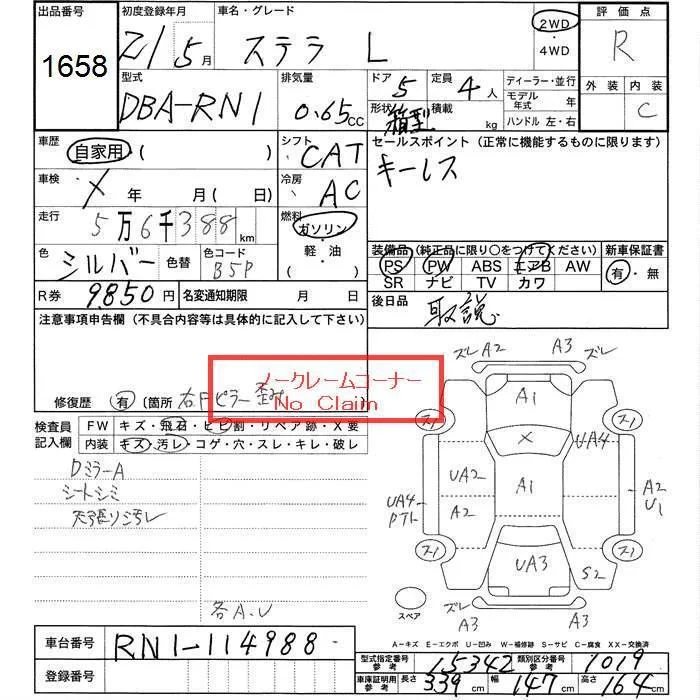 出品番号 初度登録年月 車名・グレード 2WD ・ 4WD 評価点
1658 21 5月 ステラ L R
型式 排気量 ドア 5 定員 4人 ディーラー・並行 外装 内装
DBA-RN1 0.65cc 形状 箱型 積載 kg モデル年式 年 C
ハンドル 左・右
車歴 自家用 ( ) シフト CAT セールスポイント (正常に機能するものに限ります)
車検 X 年 月(日) 冷房 AC キーレス
走行 5万6千388km 燃料 ガソリン・軽・油 ( )
色 シルバー 色替 色コード B5P
装備品 (純正品に限り○をつけてください) 新車保証書
PS PW ABS エアB AW 有・無
SR ナビ TV カワ
R券 9850円 名変通知期限 月 日 後日品 取説
注意事項申告欄 (不具合内容等は具体的に記入して下さい)
ノークレームコーナー
No Claim
修復歴 有 〔箇所 右Fピラー歪み
検査員記入欄 FW キズ・飛石・ヒビ割・リペア跡・X要
内装 キズ・汚レ・コゲ・穴・スレ・キレ・破レ
DミラーA
シートシミ
天張り汚レ
各A.U
ズレ A2 A3 ズレ
A1
スリ スリ
X UA4
UA2 A1
UA4 A2 A2 U1
スリ スリ
UA3 S2
スペア ズレ A3 ズレ A3
A-キズ E-エクボ U-凹み W-補修跡 S-サビ C-腐食 XX-交換済
車台番号 RN1-114988
登録番号
型式指定番号 参考 15342 類別区分番号 参考 1019
車庫証明用 参考 長さ 339cm 幅 147cm 高さ 164cm